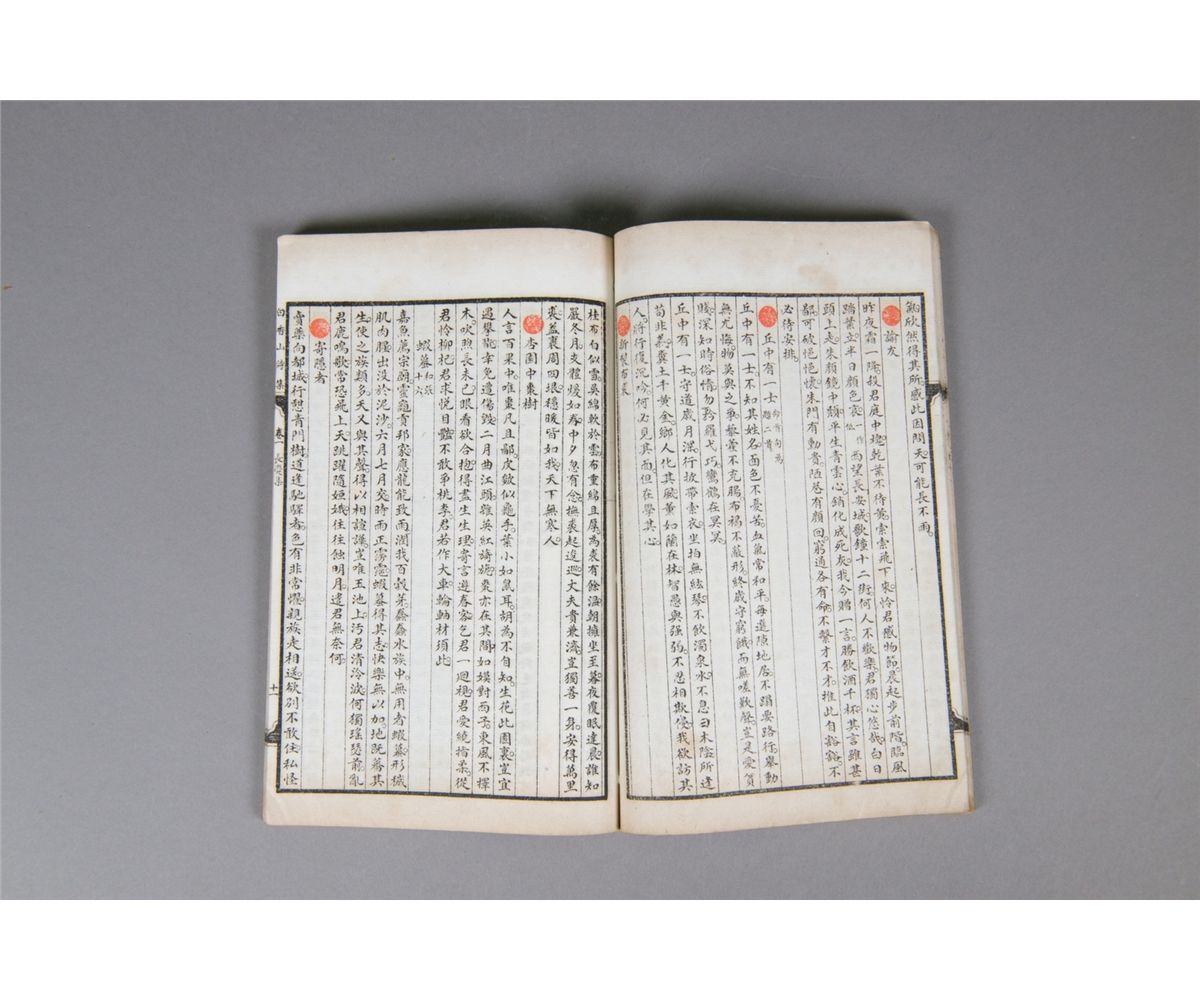 能欣然得其所感此因問天可能長不雨
諭友
昨夜霜一降殺君庭中槐乾葉不待黃索索飛下來憐君感物節晨起步前階臨風
踏葉立半日顏色哀一作低西望長安城歌鐘十二街何人不歡樂君獨心悠哉白日
頭上走朱顏鏡中頹平生青雲心銷化成死灰我今贈一言勝飲酒千杯其言雖甚
鄙可破悒悒懷朱門有勳貴陋巷有顏回窮通各有命不繫才不才推此自豁豁不
必待安排
丘中有一士命首句為題二首
丘中有一士不知其姓名面色不憂苦血氣常和平每選隙地居不蹋要路行舉動
無尤悔物莫與之爭藜藿不充腸布褐不蔽形終歲守窮餓而無嗟歎聲豈是愛貧
賤深知時俗情勿矜羅弋巧鸞鶴在冥冥
丘中有一士守道歲月深行披帶索衣坐拍無絃琴不飲濁泉水不息曰木陰所逢
苟非義糞土千黃金鄉人化其風薰如蘭在林智愚與強弱不忍相欺侵我欲訪其
人將行復沉吟何必見其面但在學其心
新製布裘
桂布白似雪吳綿軟於雲布重綿且厚為裘有餘溫朝擁坐至暮夜覆眠達晨誰知
嚴冬月支體煖如春中夕忽有念撫裘起逡巡丈夫貴兼濟豈獨善一身安得萬里
裘蓋裹周四垠穩暖皆如我天下無寒人
杏園中棗樹
人言百果中唯棗凡且鄙皮皴似龜手葉小如鼠耳胡為不自知生花此園裏豈宜
遇攀翫幸免遭傷毀二月曲江頭雜英紅旖旎棗亦在其間如嫫對西子東風不擇
木吹煦長未已眼看欲合抱得盡生生理寄言遊春客乞君一迴視君愛繞指柔從
君憐柳杞君求悅目豔不敢爭桃李君若作大車輪軸材須此
蝦蟇和張十六
嘉魚薦宗廟靈龜貢邦家應龍能致雨潤我百穀芽蠢蠢水族中無用者蝦蟇形穢
肌肉腥出沒於泥沙六月七月交時雨正霶霈蝦蟇得其志快樂無以加地既蕃其
生使之族類多天又與其聲得以相諠譁豈唯玉池上污君清泠波何獨瑤瑟前亂
君鹿鳴歌常恐飛上天跳躍隨姮娥往往蝕明月遣君無奈何
寄隱者
賣藥向都城行憩青門樹道逢馳驛者色有非常懼親族走相送欲別不敢住私怪
白香山詩集
卷一
長慶集
十一